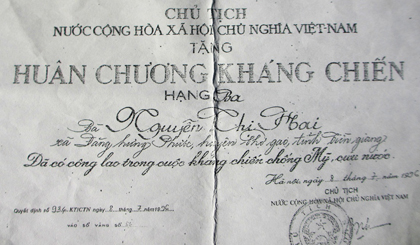 CHỦ TỊCH
NƯỚC CỘNG HÒA XÃ HỘI CHỦ NGHĨA VIỆT-NAM
TẶNG
HUÂN CHƯƠNG KHÁNG CHIẾN
HẠNG Ba
Bà Nguyễn Thị Mai
xã Đăng hưng Phước, huyện chợ gạo, tỉnh Tiền giang
Đã có công lao trong cuộc kháng chiến chống Mỹ, cứu nước.
Hà-nội, ngày 8 tháng 7 năm
CHỦ TỊCH
NƯỚC CỘNG HÒA XÃ HỘI CHỦ NGHĨA VIỆT NAM
Quyết định số 934 KT/CTN ngày 8 tháng 7 năm
VÀO SỔ VÀNG SỐ